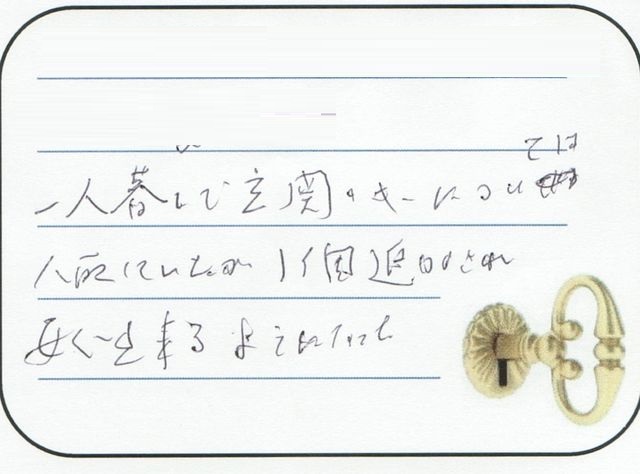 一人暮しで玄関のキーについては
心配していたが 1個追加され
安心出来るようになった